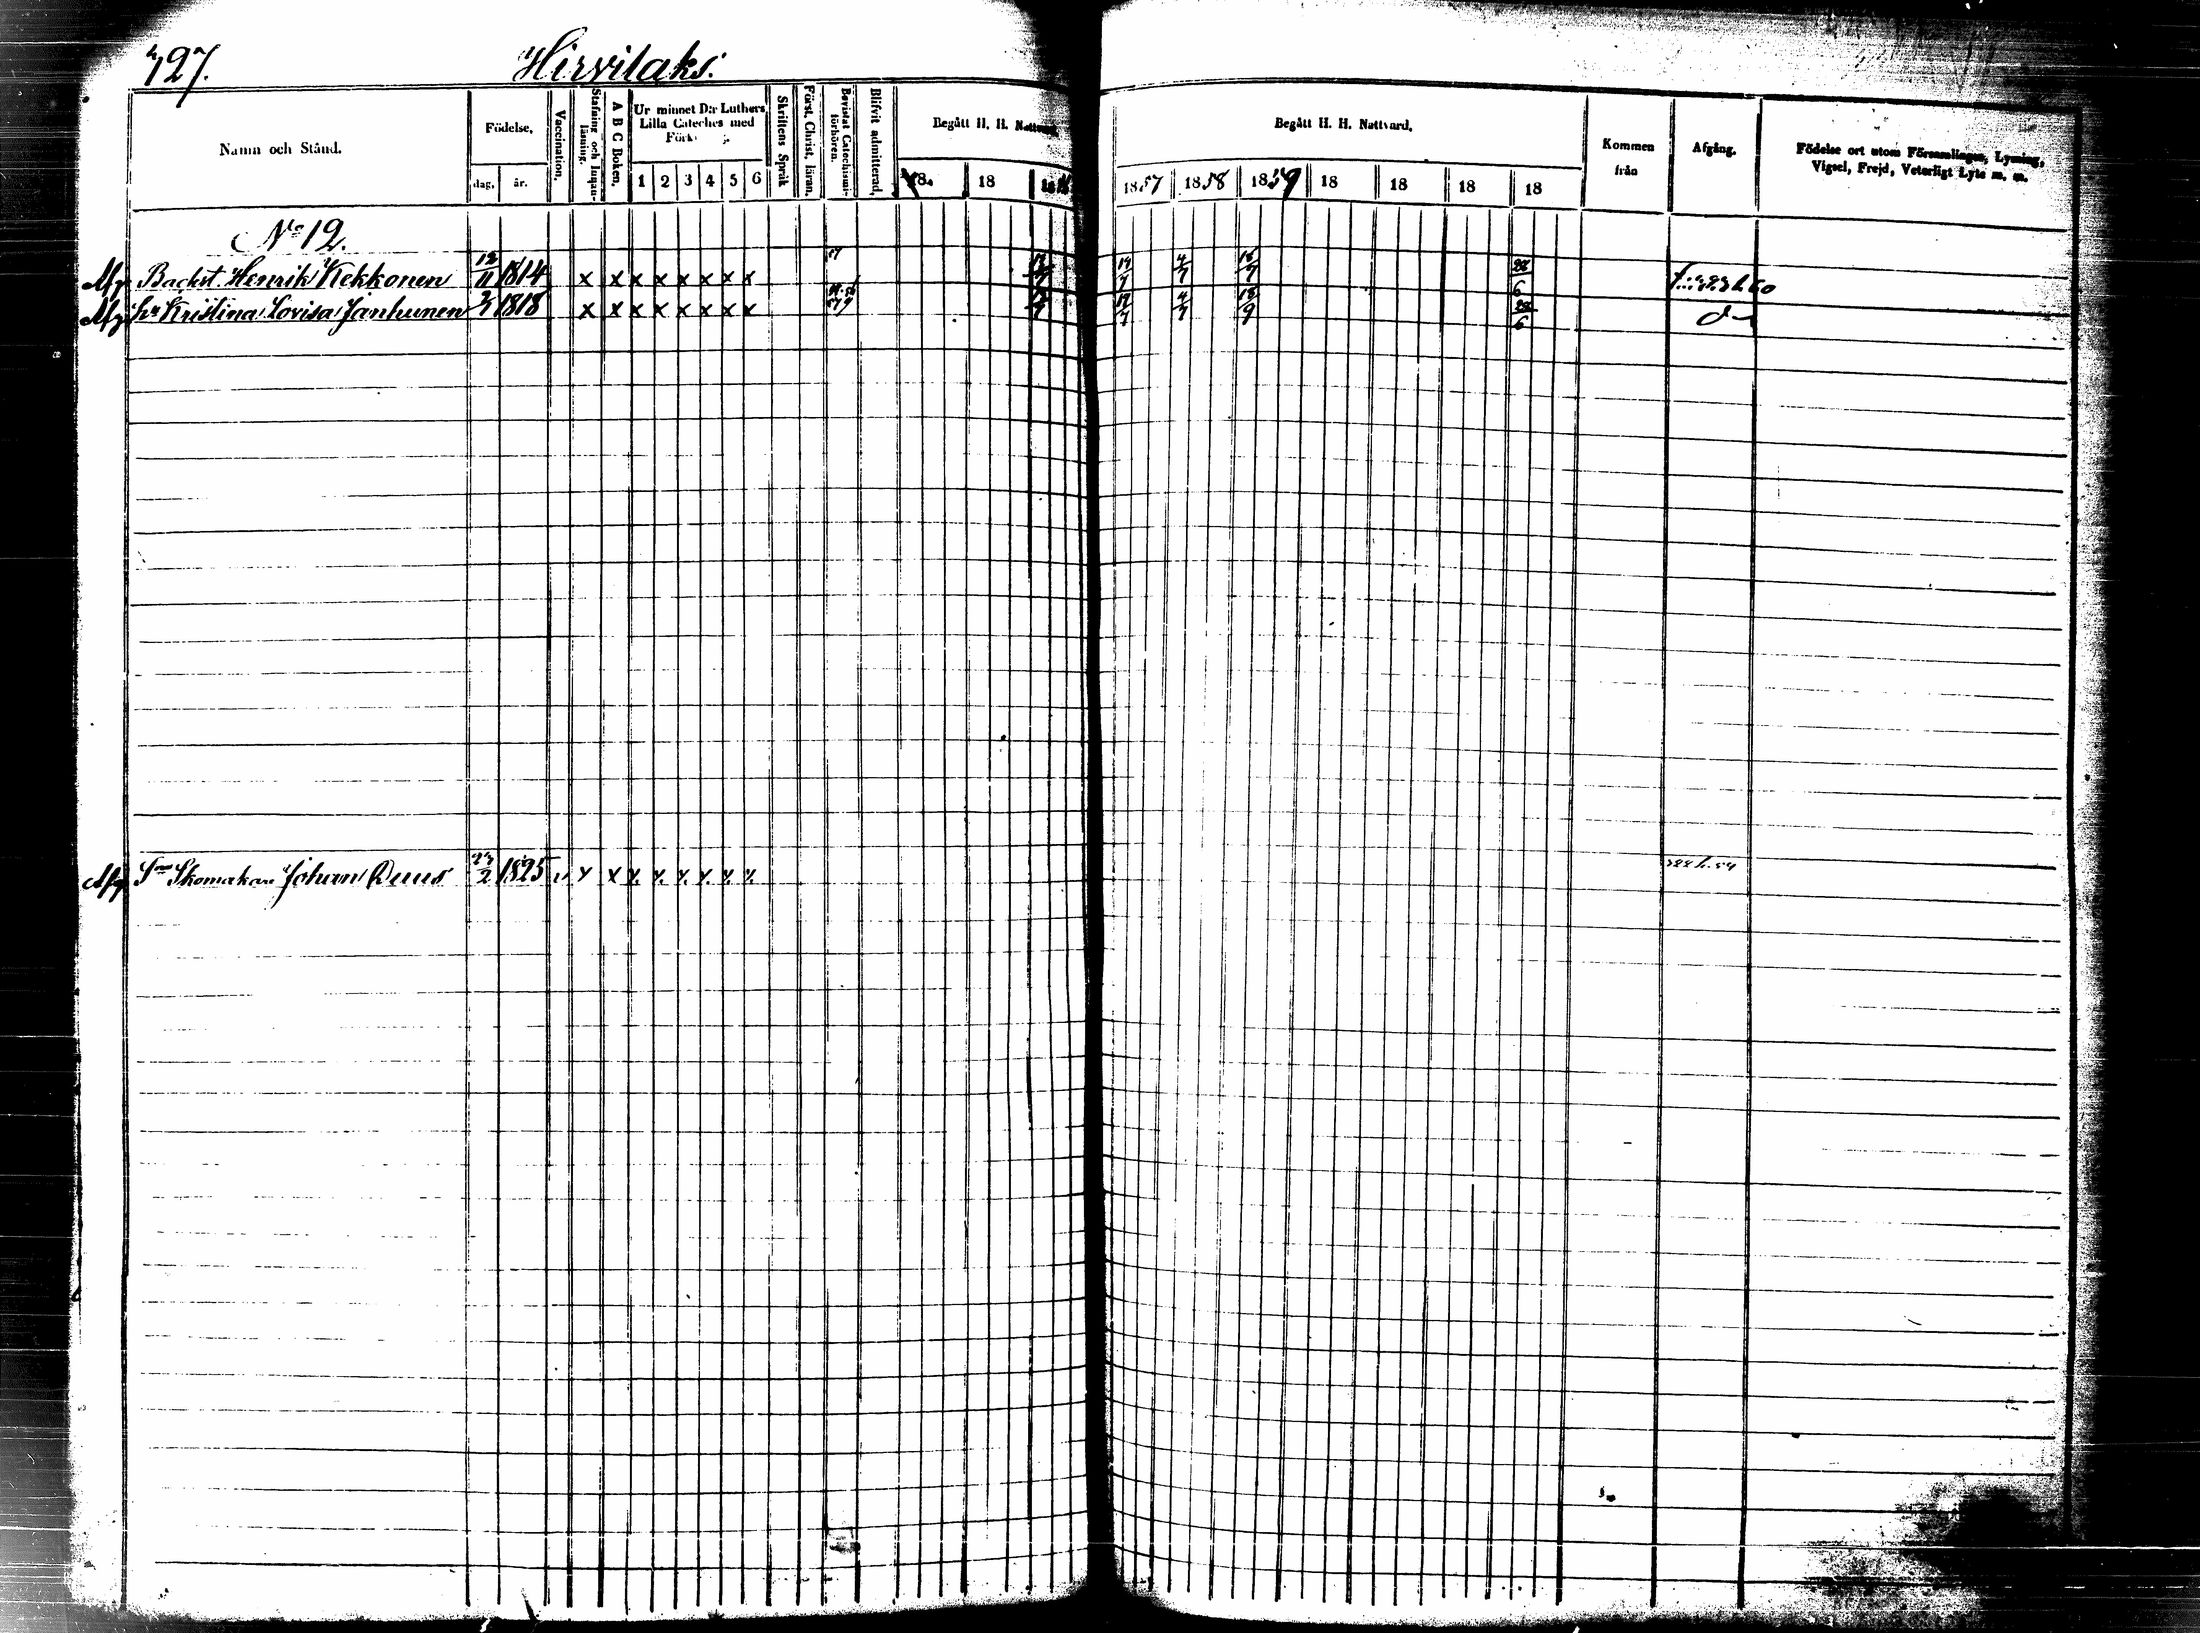 727.
Hirvilaks.
Namn och Stånd.
Födelse,
dag, år.
Vaccination.
Stafning och Innanläsning.
A B C Boken.
Ur minnet D:r Luthers Lilla Cateches med
1 2 3 4 5 6
Skriftens Språk
Först. Christ. läran.
Bevistat Catechismiförhören.
Blifvit admitterad.
Begått H. H. Nattvard,
18 18
Begått H. H. Nattvard,
1857 1858 1859 18 18 18 18
Kommen från
Afgång.
Födelse ort utom Församlingen, Lysning, Vigsel, Frejd, Veterligt Lyte m. m.
No 12.
Afg Backst. Henrik Kekkonen 12/11 1814 x x x x x x x x 57 19/7 4/7 18/9 28/6
Afg Hu Kristina Lovisa Janhunen 1818 x x x x x x x x 12/7 4/7 18/9 28/6
Afg Sme Skomakare Johan Ruus 1825